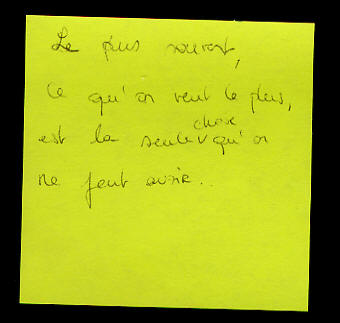 Le plus souvent,
ce qu'on veut le plus,
est la seule chose qu'on
ne peut avoir..